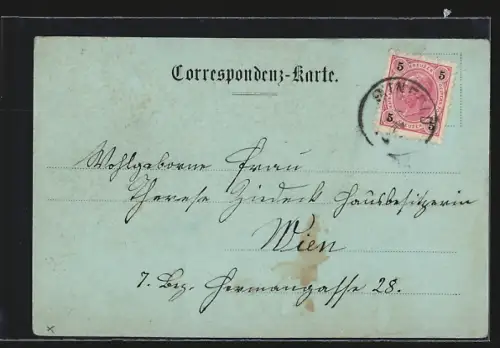 Correspondenz-Karte.
5 5
5 5
Wohlgeborne Frau
Therese Hausbesitzerin
Wien
7. Bez. Hermangasse 28.